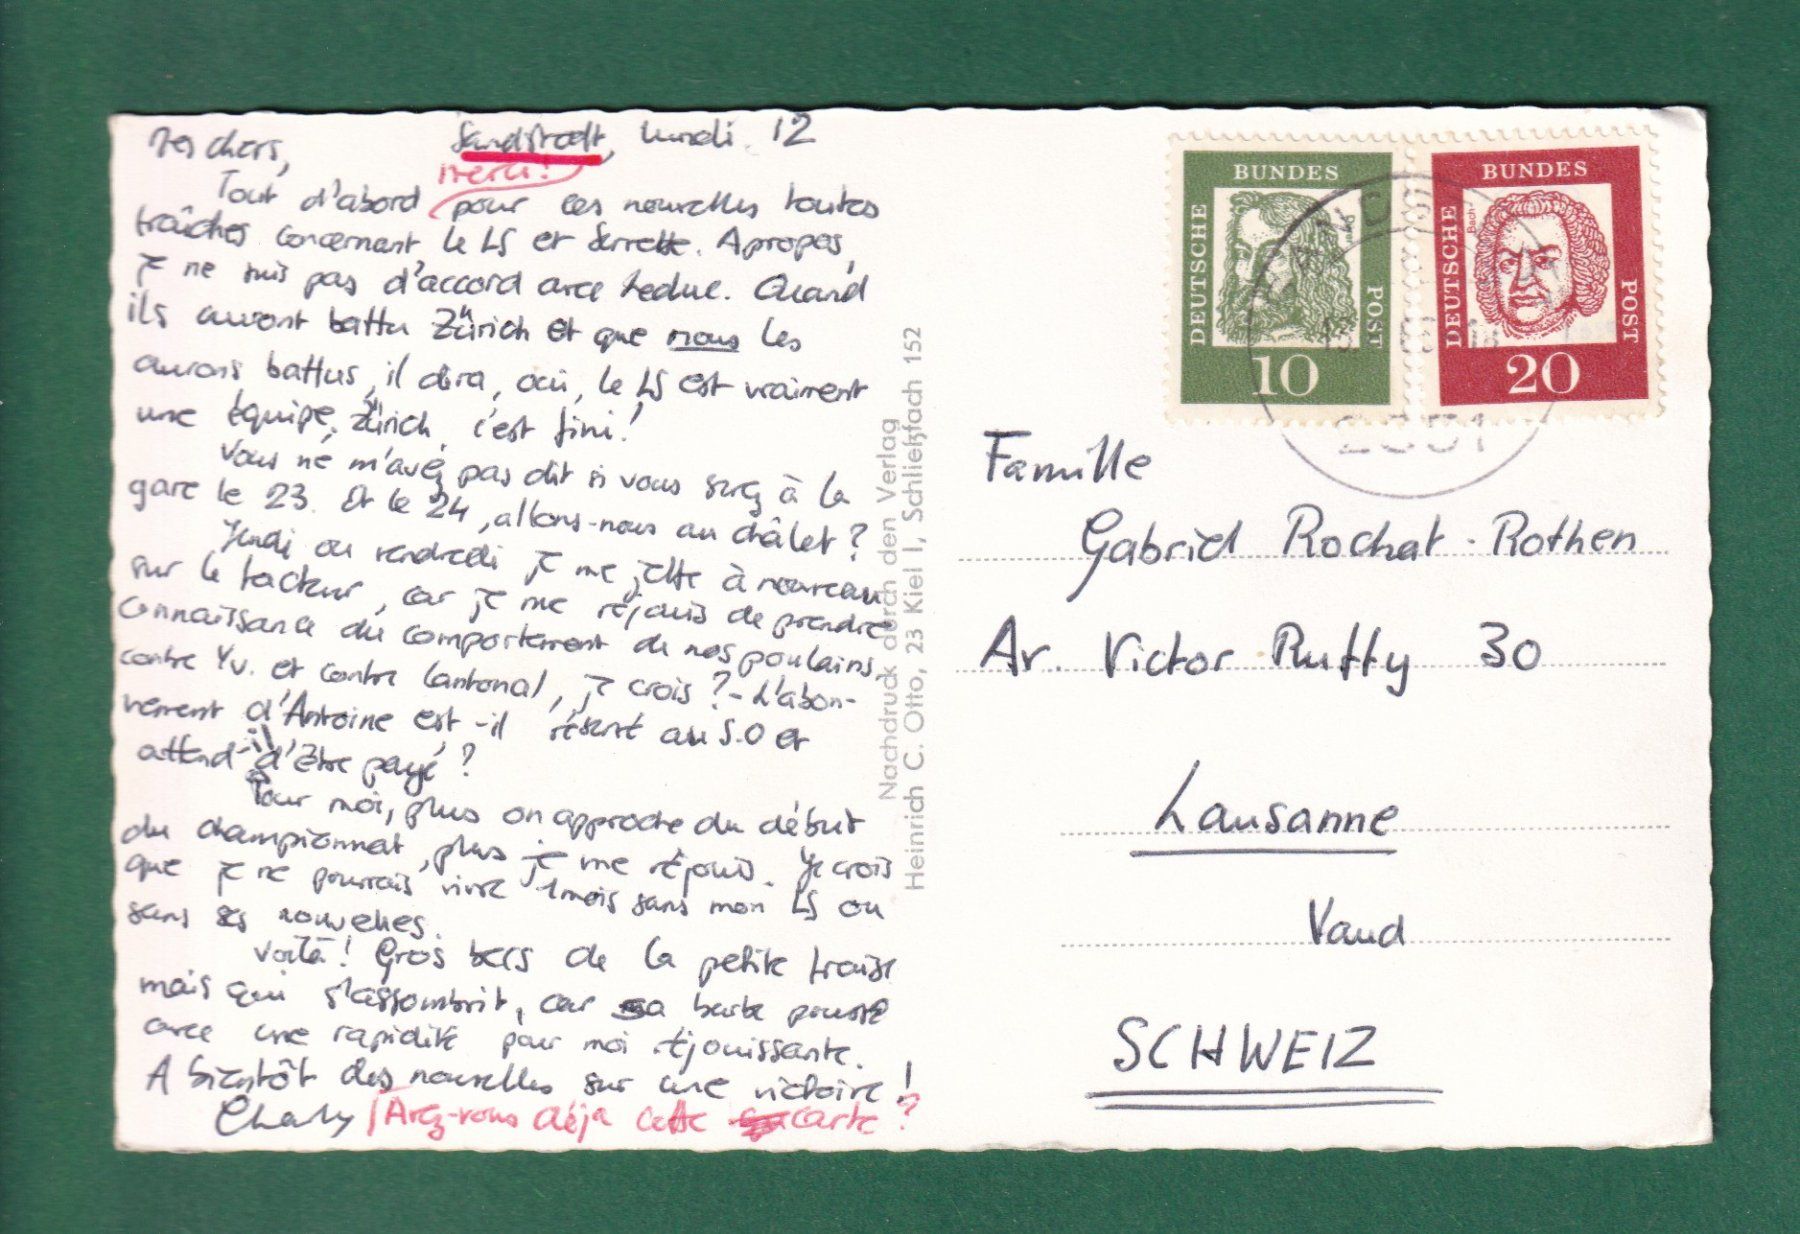 Mes chers, Sandstedt, lundi 12
merci!
Tout d'abord pour ces nouvelles toutes
fraîches concernant le LS et Servette. A propos,
je ne suis pas d'accord avec Leduc. Quand
ils auront battu Zürich et que nous les
aurons battus, il dira, oui, le LS est vraiment
une équipe, Zürich, c'est fini!
Vous ne m'avez pas dit si vous serez à la
gare le 23. Et le 24, allons-nous au châlet?
Jeudi ou vendredi je me jette à nouveau
sur le facteur, car je me réjouis de prendre
connaissance du comportement de nos poulains
contre Yv. et contre Cantonal, je crois? - L'abon-
nement d'Antoine est-il réservé au S.O et
attend-il d'être payé?
Pour moi, plus on approche du début
du championnat, plus je me réjouis. Je crois
que je ne pourrais vivre 1 mois sans mon LS ou
sans ses nouvelles.
Voilà! Gros becs de la petite fraise
mais qui s'assombrit, car sa barbe pousse
avec une rapidité pour moi réjouissante.
A bientôt des nouvelles sur une victoire!
Charly
Avez-vous déjà cette carte?
Nachdruck durch den Verlag
Heinrich C. Otto, 23 Kiel 1, Schließfach 152
DEUTSCHE BUNDES POST
10
DEUTSCHE BUNDES POST
Bach
20
Famille
Gabriel Rochat-Rothen
Av. Victor Ruffy 30
Lausanne
Vaud
SCHWEIZ